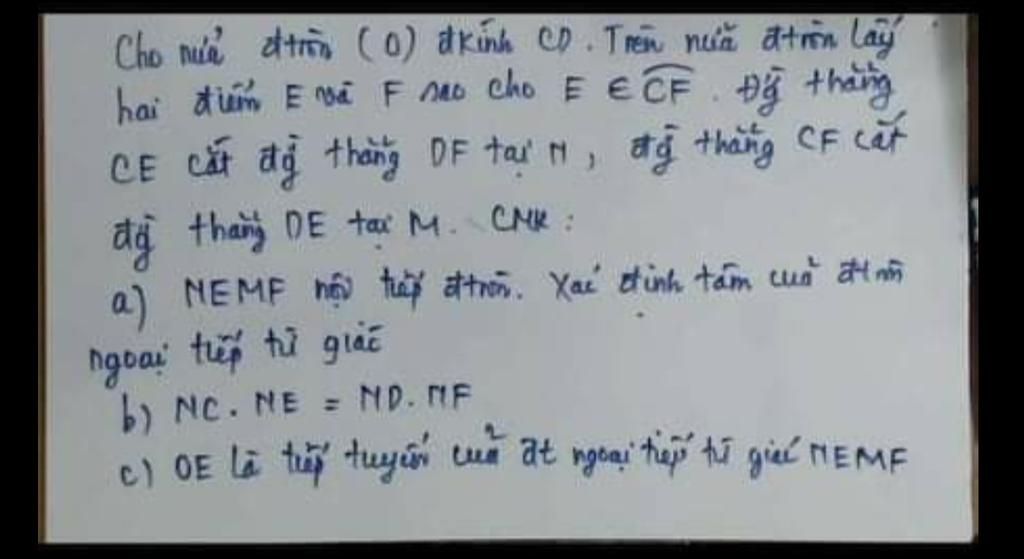 Cho nửa đtròn (O) đkính CD. Trên nửa đtròn lấy
hai điểm E và F sao cho E ∈ CF. Đg̀ thẳng
CE cắt đg̀ thẳng DF tại N, đg̀ thẳng CF cắt
đg̀ thẳng DE tại M. CMR:
a) NEMF nội tiếp đtròn. Xác định tâm của đtròn
ngoại tiếp tứ giác
b) NC.NE = ND.NF
c) OE là tiếp tuyến của đt ngoại tiếp tứ giác NEMF